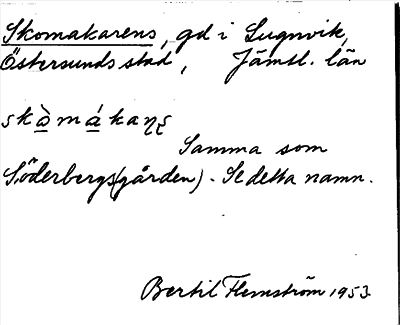 Skomakarens, gd i Lugnvik,
Östersunds stad, Jämtl. län
Samma som
Söderbergs(gården). Se detta namn.
Bertil Flemström 1953